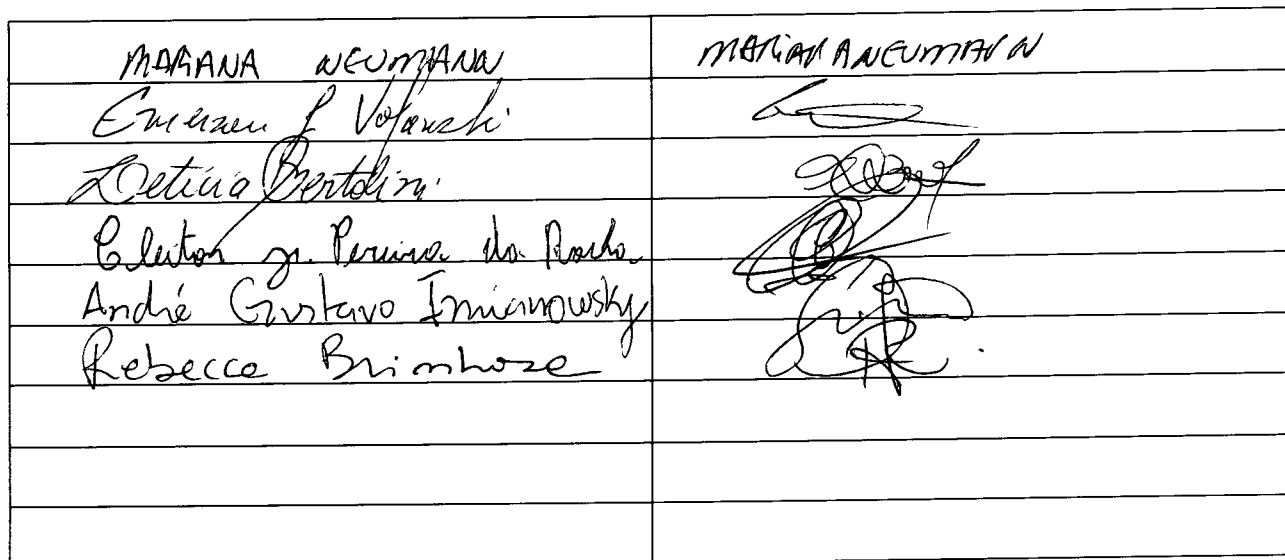 MARIANA NEUMANN MARIANA NEUMANN
Emerson L Volanski
Leticia Bertolini
Cleiton Jr. Pereira da Rocha
André Gustavo Imianowsky
Rebecca Brinhosa